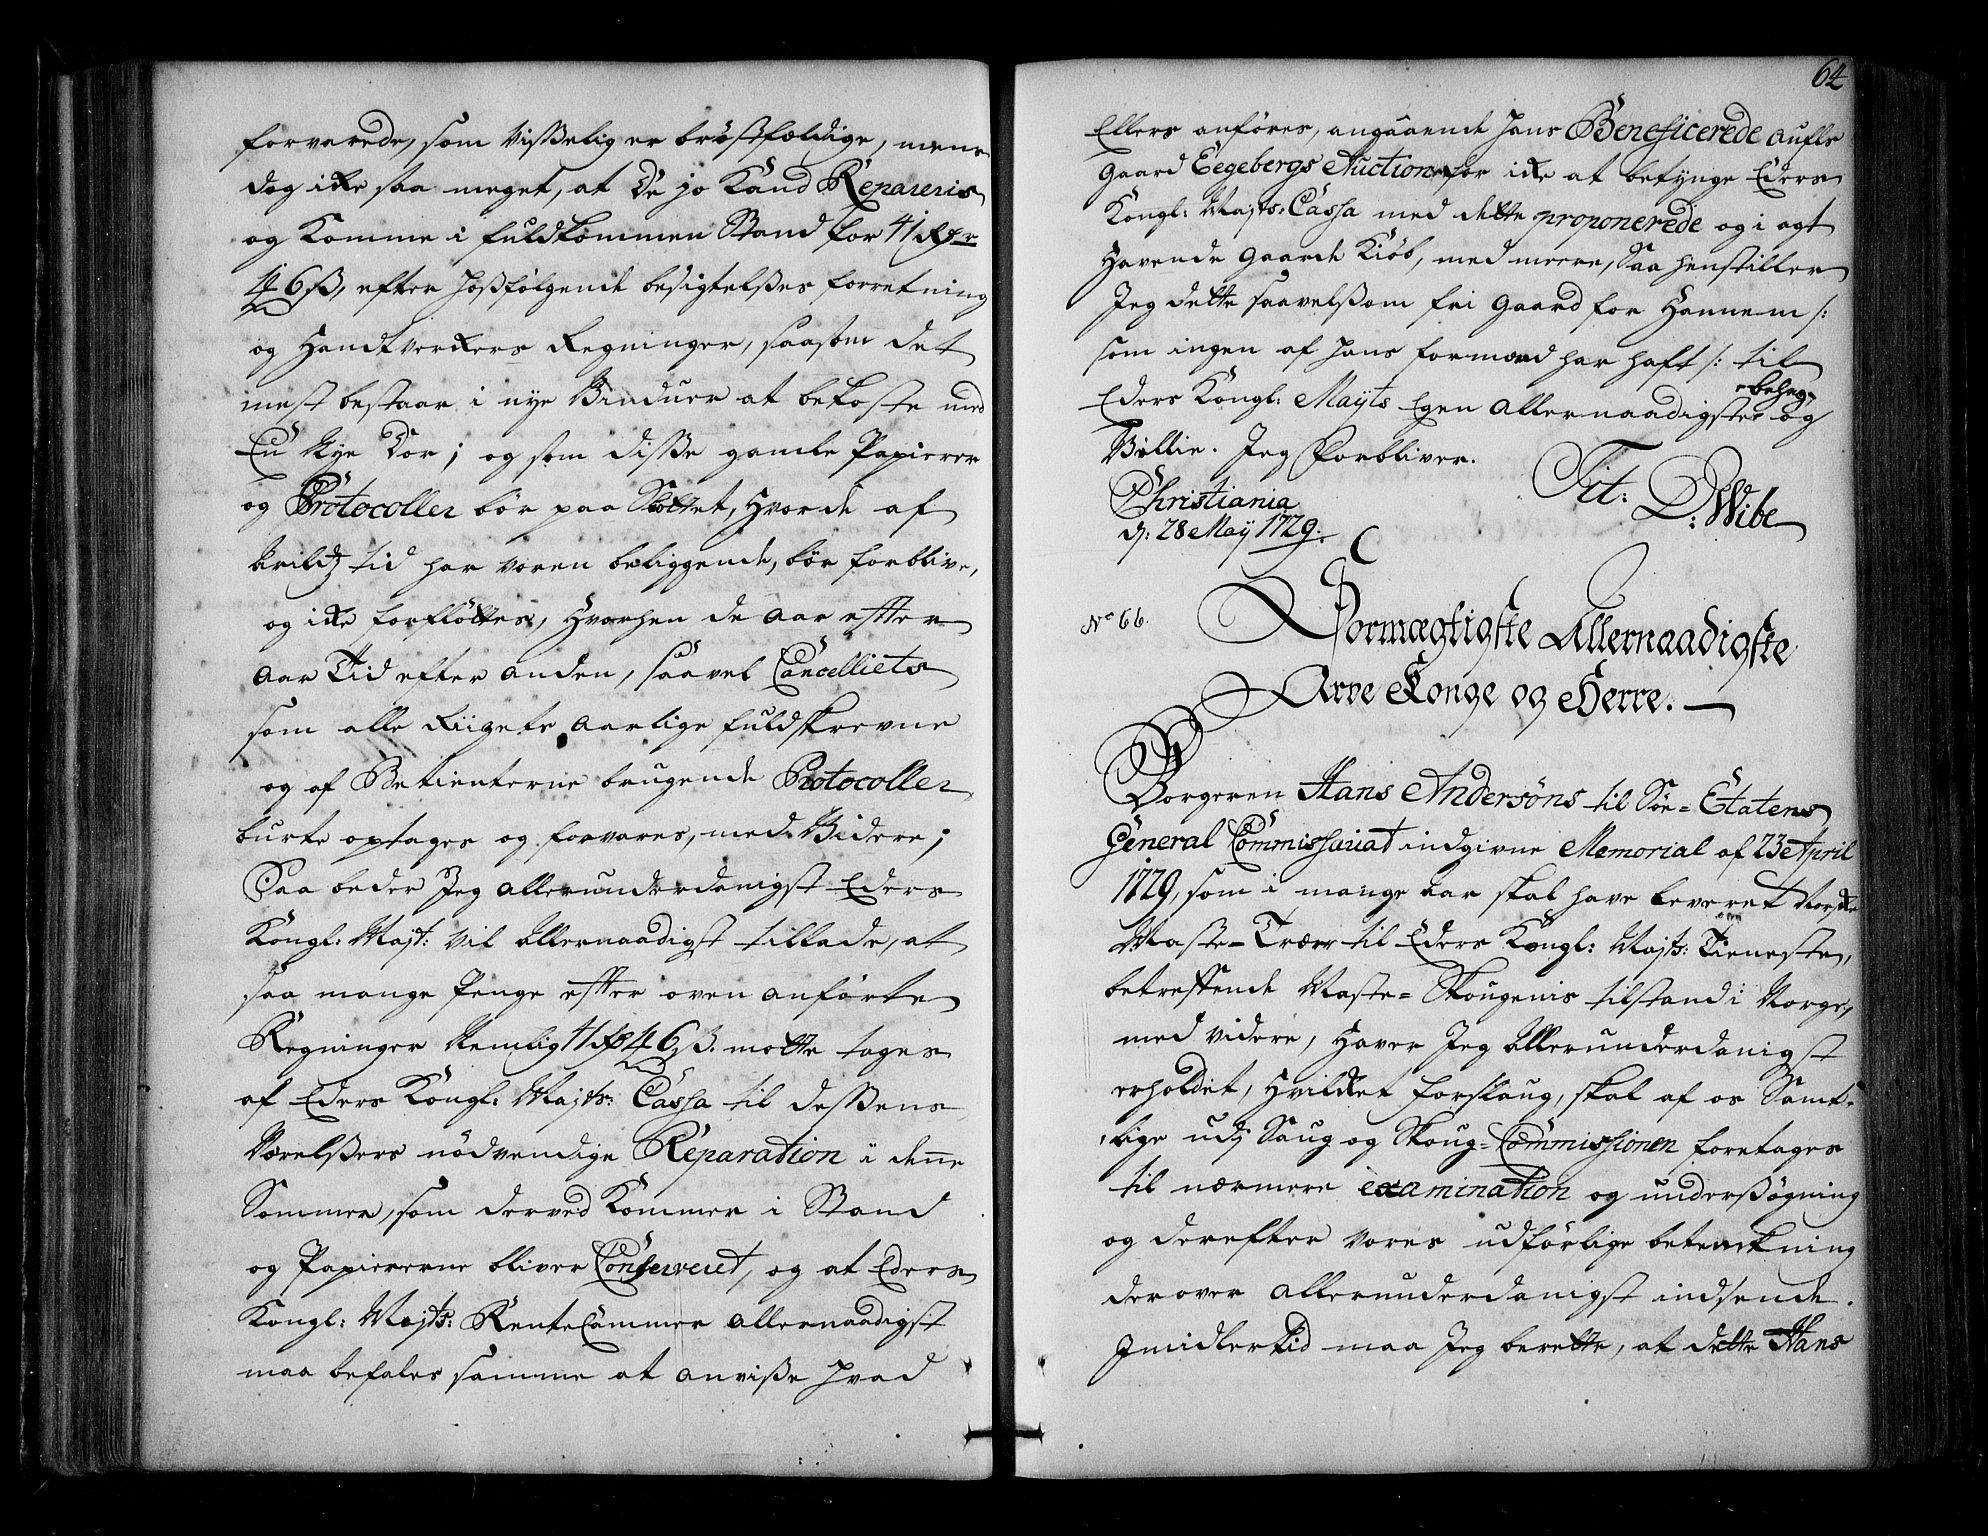 forvarede, som Visselig er bröstfældige, mens
dog ikke saa meget, at De jo Kand Repareris
og Komme i fuldkommen Stand for 41 Rdr
46 ß, efter hosfølgende besigtelses forretning
og Handtverkers Regninger, saasom det
mest bestaar i nye Vinduer at bekoste med
En Nye Dör; og som disse gamle Papierer
og Protocoller bör paa Slottet, hvor de af
arilds tid har været beliggende, bör forblive,
og ikke forflöttes, hvorhen de aar efter
aar Tid efter anden, saavel Cancelliets
som alle Riigets aarlige fuldskrevne
og af Betienterne brugende Protocoller
burte optages og forvares, med Videre;
Saa beder Jeg allerunderdanigst Eders
Kongl: Majt: vil allernaadigst tillade, at
saa mange Penge efter oven anförte
Regninger Nemlig 41 Rd 46 ß. motte tages
af Eders Kongl: Majts: Cassa til dessens
Værelsers nödvendige Reparation i denne
Sommer, som derved Kommer i Stand
og Papiererne bliver Conserveret, og at Eders
Kongl: Majts: RenteCammer allernaadigst
maa befales samme at anvisse hvad
64
Ellers anföres, angaaende hans Beneficerede aufls
Gaard Eegebergs Auction, for ikke at betynge Eders
Kongl: Majts: Cassa med dette proponerede og i agt
Havende Gaards Kiöb, med meere, Saa henstiller
Jeg dette saavelsom fri Gaard for Hannem /:
som ingen af hans formænd har haft :/ til
Eders Kongl: Mayts Egen allernaadigste behag og
Villie. Jeg Forbliver.
Tit: D: Wibe
Christiania
d: 28 May 1729.
No 66.
Stormægtigste Allernaadigste
Arve Konge og Herre.
Borgeren Hans Andersöns til Söe=Etatens
General Commissariat indgivne Memorial af 23 April
1729, som i mange aar skal have leveret Norske
Maste=Træer til Eders Kongl: Majts: Tieneste,
betreffende Maste=Skougenis tilstand i Norge,
med videre, Haver Jeg allerunderdanigst
erholdet, Hvilket forslaug, skal af os Samt-
lige udj Saug og Skoug=Commissionen foretages
til nærmere examination og undersögning
og derefter vores udförlige betænkning
derover allerunderdanigst indsende.
Imidlertid maa Jeg berette, at dette Hans